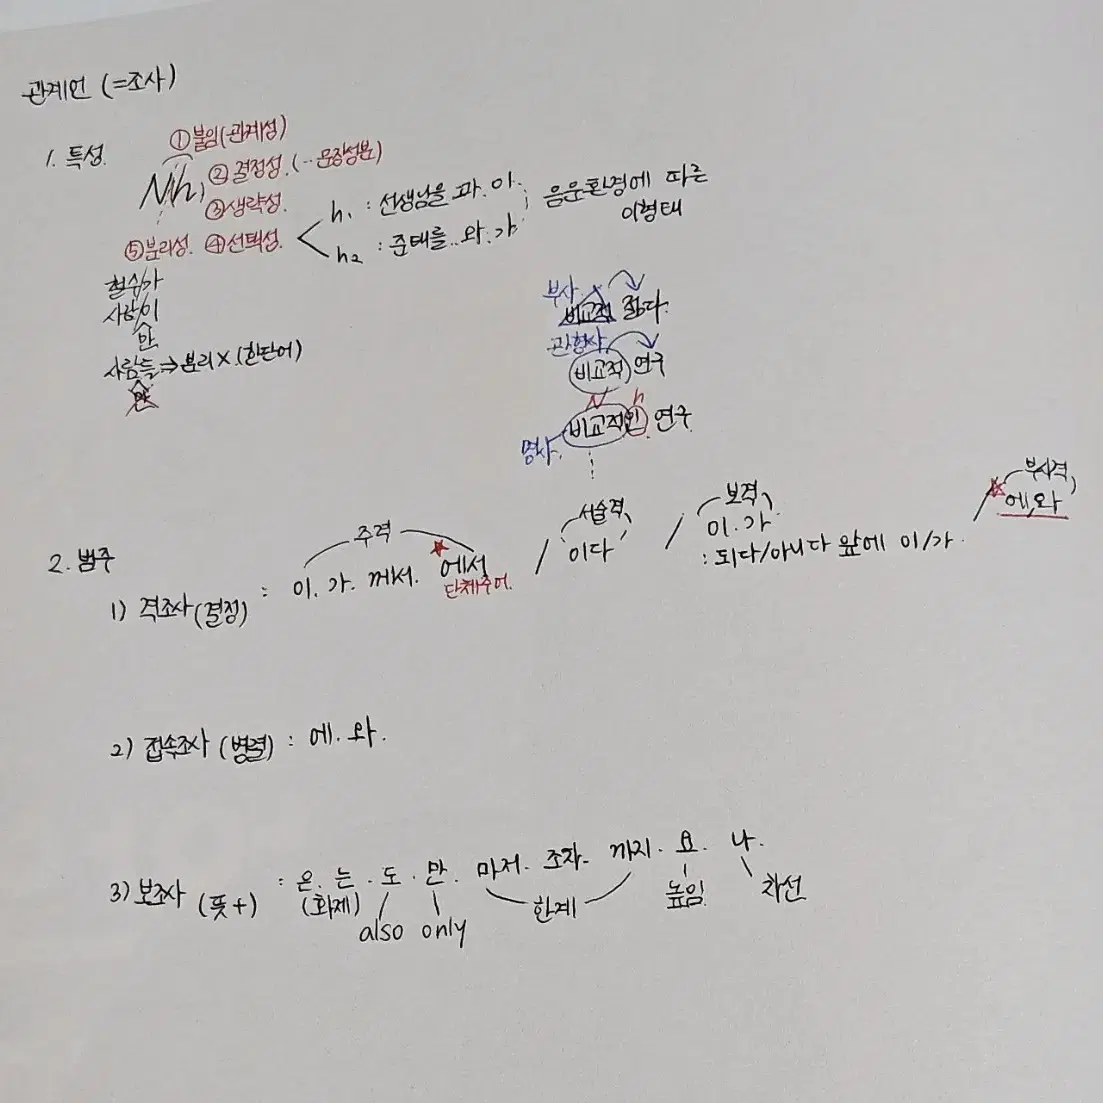 관계언 (=조사)
1. 특성
①붙임(관계성)
Nh,
②결정성.(‥문장성분)
③생략성.
⑤분리성. ④선택성.
h₁ : 선생님을 과. 이.
h₂ : 준태를.. 와. 가
음운환경에 따른
이형태
철수가
사람이
만
사람들⇒분리×(한단어)
만
부사.
비교적 좋다.
관형사
비교적 연구
N h
비교적인 연구
명사.
2. 범주
1) 격조사(결정) : 이. 가. 께서. 에서 / 이다 / 이. 가. / 에, 와
주격
단체주어.
서술격
보격
: 되다/아니다 앞에 이/가.
부사격
2) 접속조사 (병렬) : 에. 와.
3) 보조사 (뜻+) : 은. 는. 도. 만. 마저. 조차. 까지. 요. 나.
(화제)
also only
한계
높임.
차선